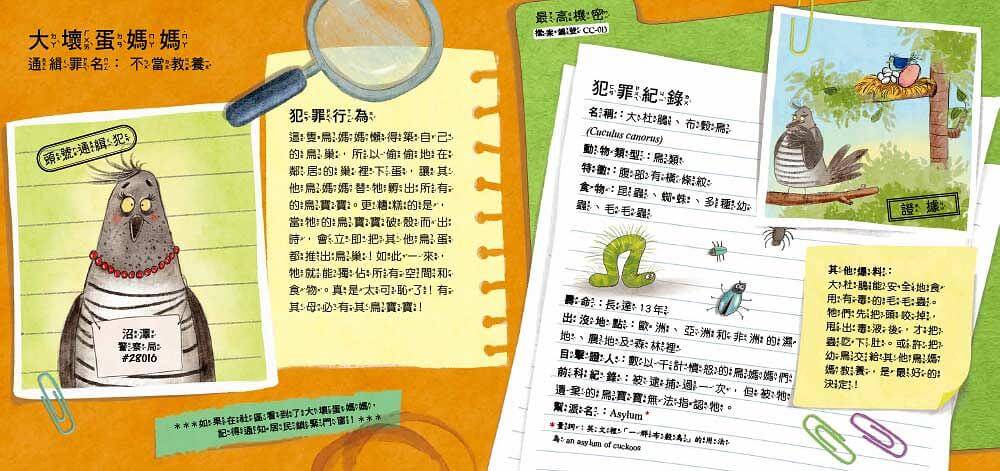 大壞蛋媽媽
通緝罪名：不當教養
頭號通緝犯
沼澤
警察局
#28016
犯罪行為
這隻鳥媽媽懶得築自己
的鳥巢，所以偷偷地在
鄰居的巢裡下蛋，讓其
他鳥媽媽替牠孵出所有
的鳥寶寶。更糟糕的是，
當牠的鳥寶寶破殼而出
時，會立即把其他鳥蛋
都推出鳥巢！如此一來，
牠就能獨佔所有空間和
食物。真是太可恥了！有
其母必有其鳥寶寶！
***如果在社區看到了大壞蛋媽媽，
記得通知居民鎖緊門窗！***
最高機密
檔案編號 CC-013
犯罪紀錄
名稱：大杜鵑、布穀鳥
(Cuculus canorus)
動物類型：鳥類
特徵：腹部有橫條紋
食物：昆蟲、蜘蛛、多種幼
蟲、毛毛蟲
壽命：長達13年
出沒地點：歐洲、亞洲和非洲的濕
地、農地及森林裡
目擊證人：數以千計憤怒的鳥媽媽們
前科紀錄：被逮捕過一次，但被牠
遺棄的鳥寶寶無法指認牠。
幫派名：Asylum *
*量詞：英文裡「一群布穀鳥」的用法
為 an asylum of cuckoos
證據
其他爆料：
大杜鵑能安全地食
用有毒的毛毛蟲。
牠們先把頭咬掉，
甩出毒液後，才把
蟲吃下肚。或許把
幼鳥交給其他鳥媽
媽教養，是最好的
決定！